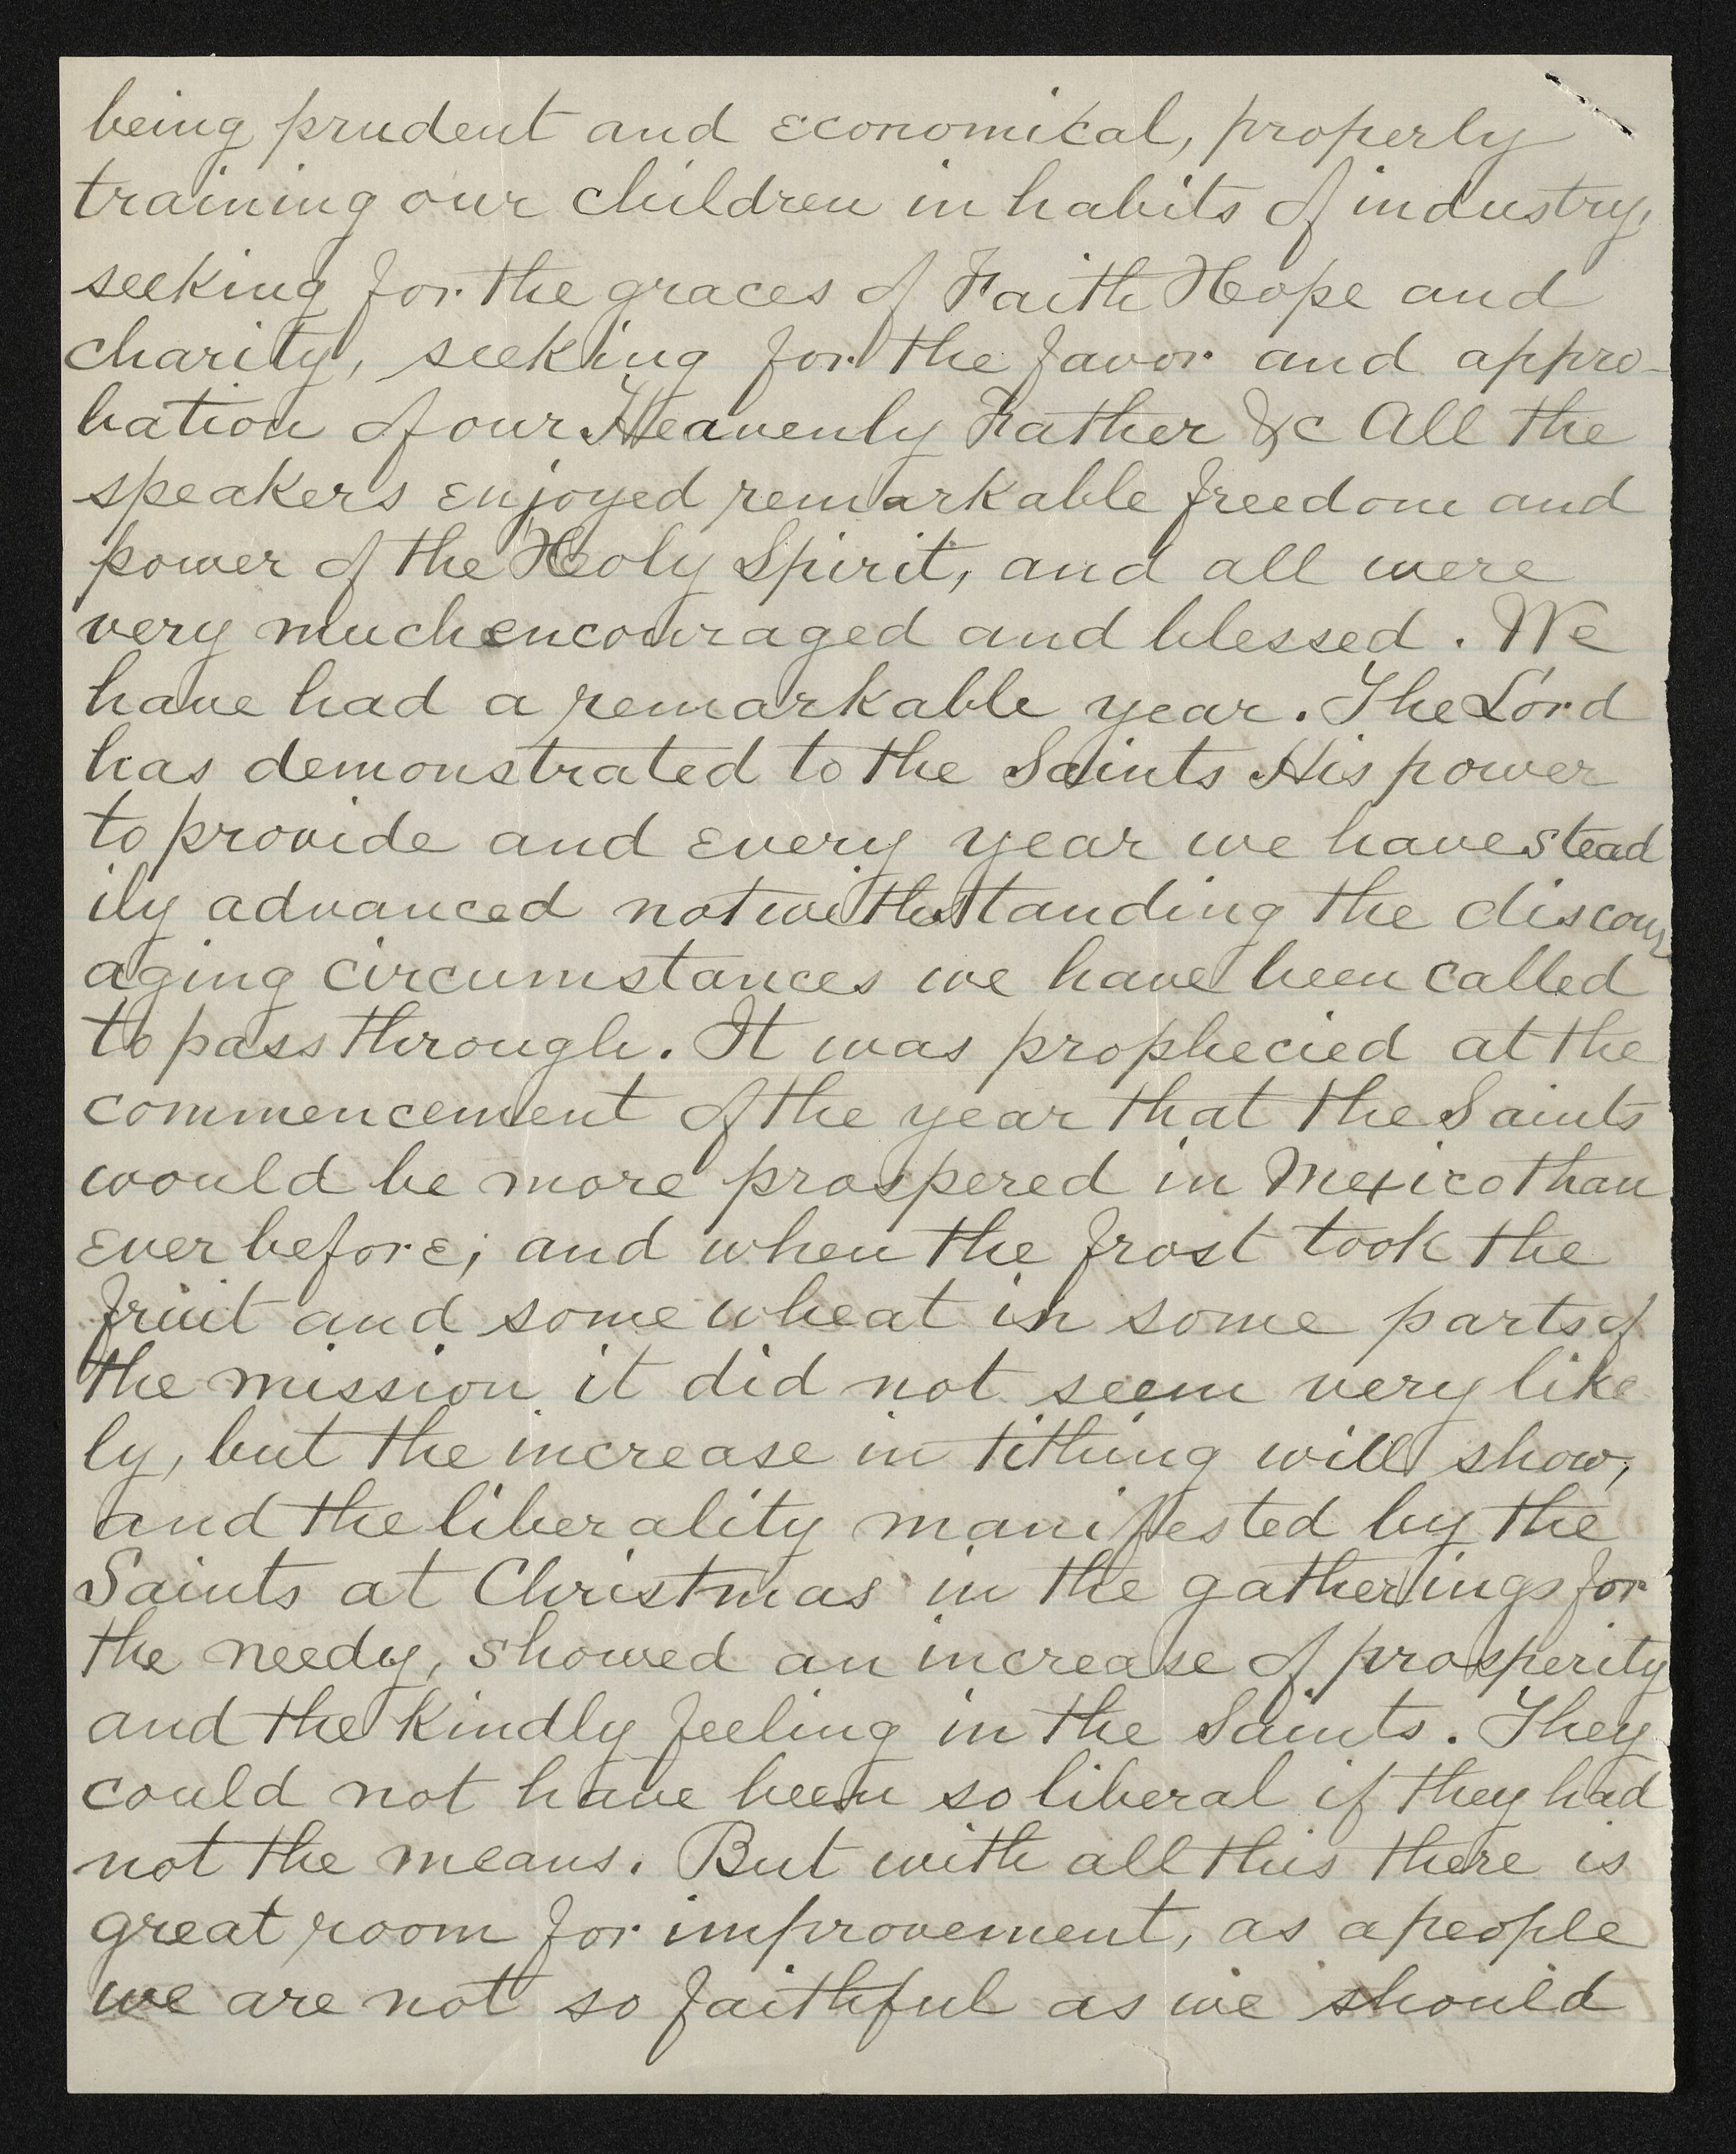 being prudent and economical, properly
training our children in habits of industry,
seeking for the graces of Faith Hope and
charity, seeking for the favor and appro-
bation of our Heavenly Father &c All the
speakers enjoyed remarkable freedom and
power of the Holy Spirit, and all were
very much encouraged and blessed. We
have had a remarkable year. The Lord
has demonstrated to the Saints His power
to provide and every year we have stead
ily advanced notwithstanding the discour
aging circumstances we have been called
to pass through. It was prophecied at the
commencement of the year that the Saints
would be more prospered in Mexico than
ever before; and when the frost took the
fruit and some wheat in some parts of
the mission it did not seem very like
ly, but the increase in tithing will show,
and the liberality manifested by the
Saints at Christmas in the gatherings for
the needy, showed an increase of prosperity
and the kindly feeling in the Saints. They
could not have been so liberal if they had
not the means. But with all this there is
great room for improvement, as a people
we are not so faithful as we should